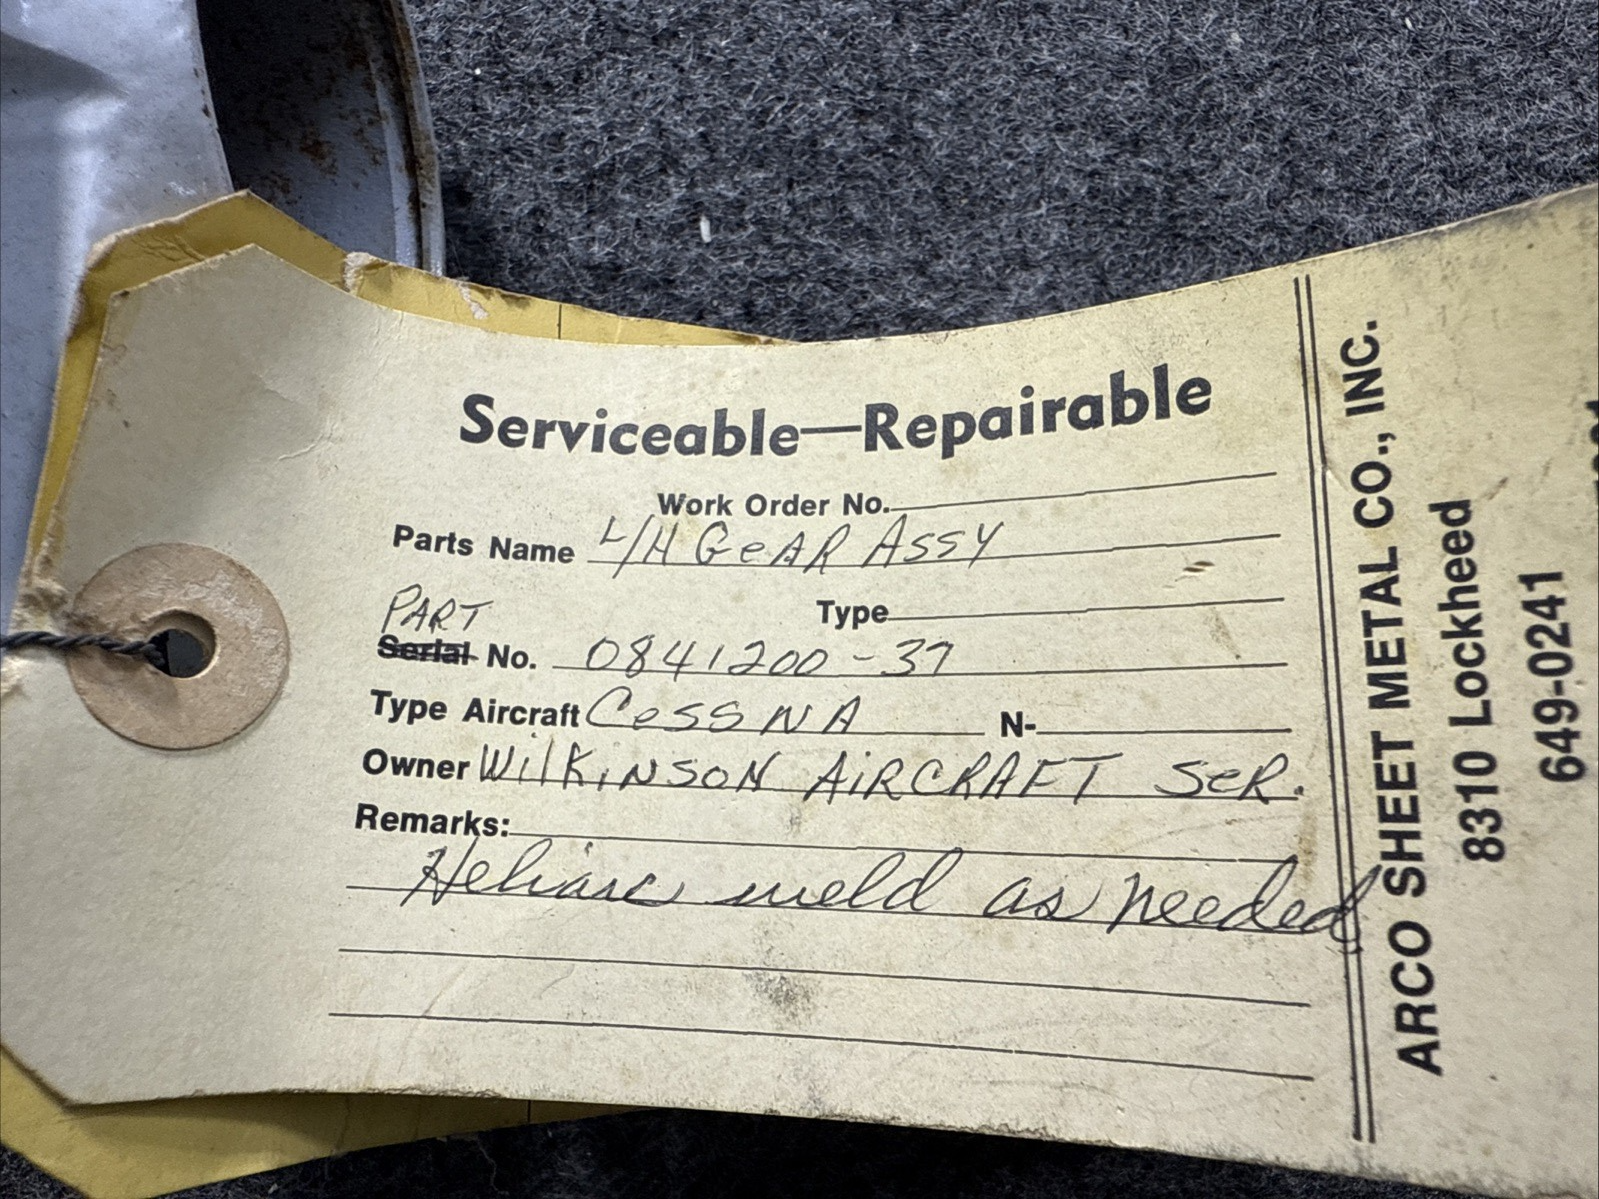 Serviceable—Repairable
Work Order No.
Parts Name L/H GeAR ASSY
PART
Type
Serial No. 0841200-37
Type Aircraft CessNA N-
Owner WilKiNSON AiRCRAFT SeR.
Remarks:
Heliarc weld as needed
ARCO SHEET METAL CO., INC.
8310 Lockheed
649-0241